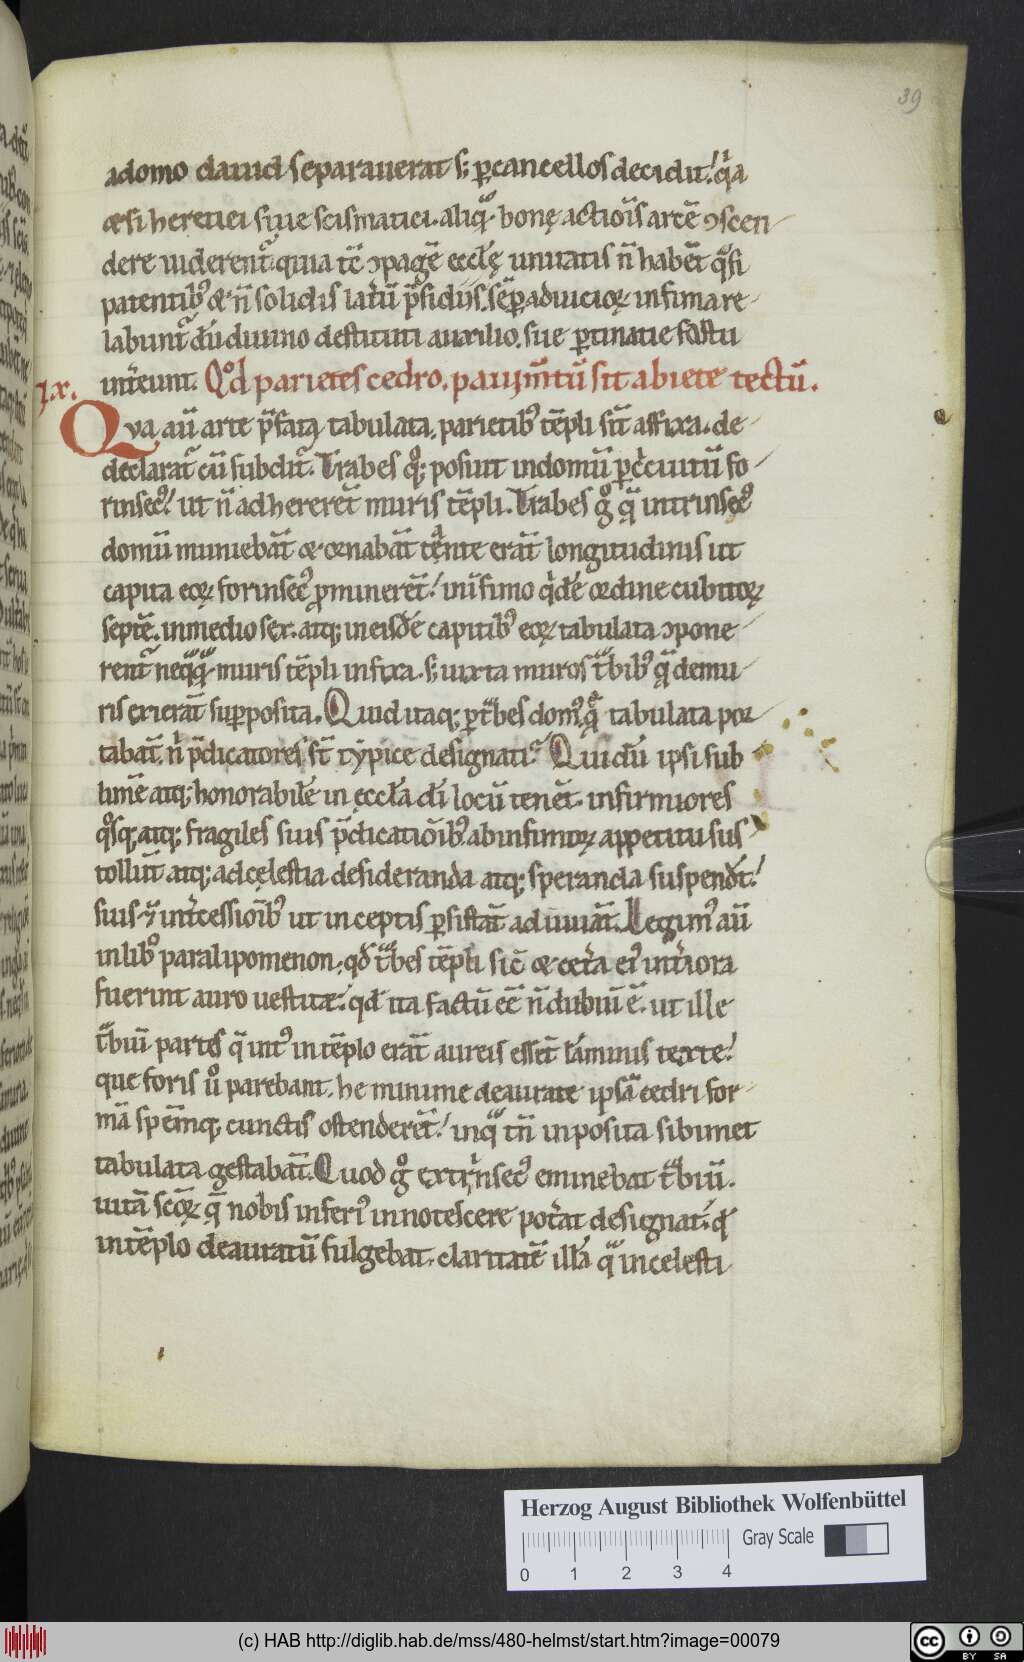 39
adomo dauid separauerat s; ꝑcancellos decidit. q̊a
&si heretici siue scismatici. aliq̊ bonę actiōis arcē ↄscen
dere uiderent᷑. quia tc̄ ↄpagē ecclę unitatis n̄ habēt q̊si
patentib; & n̄ solidis latū p̄sidiis. sēꝑaduicioꝝ infima re
labunt᷑ dū diuino destituti auxilio. sue ꝑtinatie fastu
intereunt. Qd̊ parietes cedro. pauim̄tū sit abiete tectū.
IX.
Qva aū arte p̄fata tabulata. parietib; tēpli sr̄t affixa. de
declarat᷑ cū subdit᷑. Trabes q̊; posuit indomū ꝑcircuitū fo
rinsec᷒. ut n̄ adhererēt muris tēpli. Trabes g̊ q̄ intrinsec᷒
domū muniebāt & ornabāt tantę erāt longitudinis ut
capita eoꝝ forinsec᷒ ꝓminerēt. inīfimo q̇dē ordine cubitoꝝ
septē. inmedio sex. atq; ineisdē capitib; eoꝝ tabulata ↄpone
rent᷑ neq̊q̊ muris tēpli infixa. s; iuxta muros t̊bib; q̄ demu
ris exierāt suꝑposita. Quid itaq; ꝑt̊bes dom᷒. q̄ tabulata por
tabāt. n̊ p̄dicatores sr̄t typice designati. Qui dū ipsi sub
limē atq; honorabilē in ęccła dī locū tenēt. infirmiores
q̊sq; atq; fragiles suis p̄dicatiōib; abinfimoꝝ appetitu sus
tollūt atq; ad cęlestia desideranda atq; speranda suspendt.
suis⁊ int̄cessiōib; ut inceptis ꝑsistāt adiuuāt. Legim᷒ aū
inlib̊ paralipomenon. qd̄ t̊bes tēpli sic̄ & cetera ei᷒ int̄iora
fuerint auro uestitæ. qd̄ ita factū eē n̄ dubiū ē. ut ille
t̊biū partes q̄ int᷒ intēplo erāt aureis essēt laminis texte.
que foris ů parebant. he minime deaurate ipsā cedri for
mā spēmq; cunctis ostenderēt. inq̊ tn̄ inposita sibimet
tabulata gestabāt. Quod g̊ extrinsec᷒ eminebat t̊biū.
uitā sc̄oꝝ q̄ nobis inferi᷒ innotescere poterat designat. qd̄
intēplo deauratū fulgebat. claritatē illā q̊ incelesti
Herzog August Bibliothek Wolfenbüttel
0 1 2 3 4 Gray Scale
(c) HAB http://diglib.hab.de/mss/480-helmst/start.htm?image=00079
cc BY SA